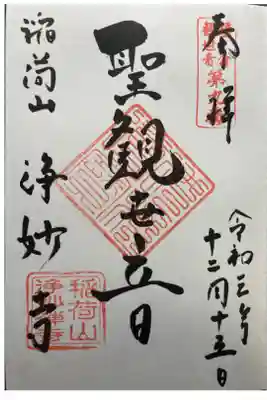 奉拝
令和三年
十二月十五日
聖観世音
稲荷山
浄妙寺
稲荷山
浄妙禅寺